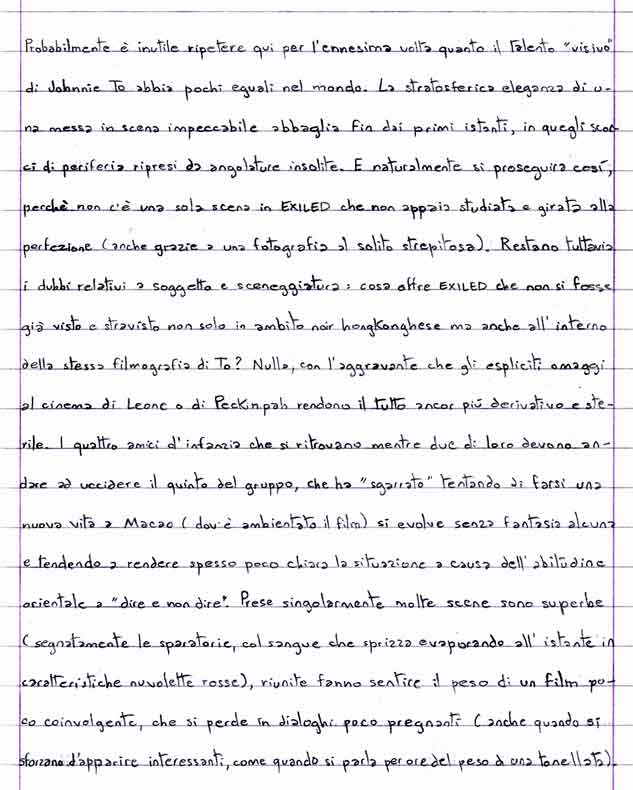 Probabilmente è inutile ripetere qui per l'ennesima volta quanto il talento "visivo"
di Johnnie To abbia pochi eguali nel mondo. La stratosferica eleganza di u-
na messa in scena impeccabile abbaglia fin dai primi istanti, in quegli scor-
ci di periferia ripresi da angolature insolite. E naturalmente si proseguirà così,
perché non c'è una sola scena in EXILED che non appaia studiata e girata alla
perfezione (anche grazie a una fotografia al solito strepitosa). Restano tuttavia
i dubbi relativi a soggetto e sceneggiatura: cosa offre EXILED che non si fosse
già visto e stravisto non solo in ambito noir hongkonghese ma anche all'interno
della stessa filmografia di To? Nulla, con l'aggravante che gli espliciti omaggi
al cinema di Leone o di Peckinpah rendono il tutto ancor più derivativo e ste-
rile. I quattro amici d'infanzia che si ritrovano mentre due di loro devono an-
dare ad uccidere il quinto del gruppo, che ha "sgarrato" tentando di farsi una
nuova vita a Macao (dov'è ambientato il film) si evolve senza fantasia alcuna
e tendendo a rendere spesso poco chiara la situazione a causa dell'abitudine
orientale a "dire e non dire". Prese singolarmente molte scene sono superbe
(segnatamente le sparatorie, col sangue che sprizza evaporando all'istante in
caratteristiche nuvolette rosse), riunite fanno sentire il peso di un film po-
co coinvolgente, che si perde in dialoghi poco pregnanti (anche quando si
sforzano d'apparire interessanti, come quando si parla per ore del peso d una tonellata).